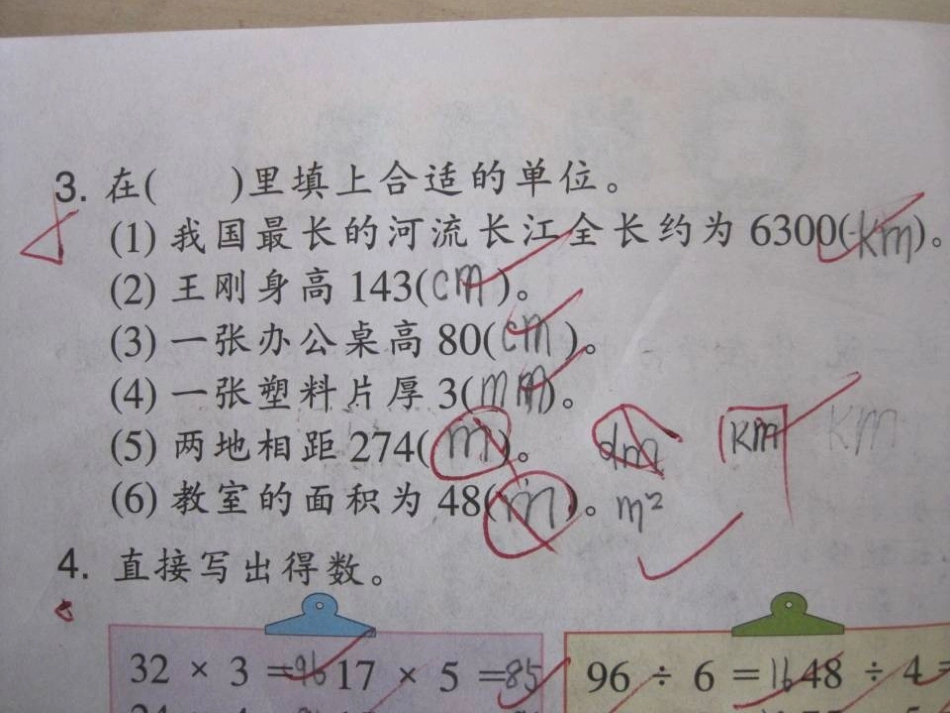 3. 在(  )里填上合适的单位。
(1) 我国最长的河流长江全长约为 6300(km)。
(2) 王刚身高 143(cm)。
(3) 一张办公桌高 80(cm)。
(4) 一张塑料片厚 3(mm)。
(5) 两地相距 274(m)。 dm km km
(6) 教室的面积为 48(m)。 m²
4. 直接写出得数。
32 × 3 =96 17 × 5 =85 96 ÷ 6 =16 48 ÷ 4 =